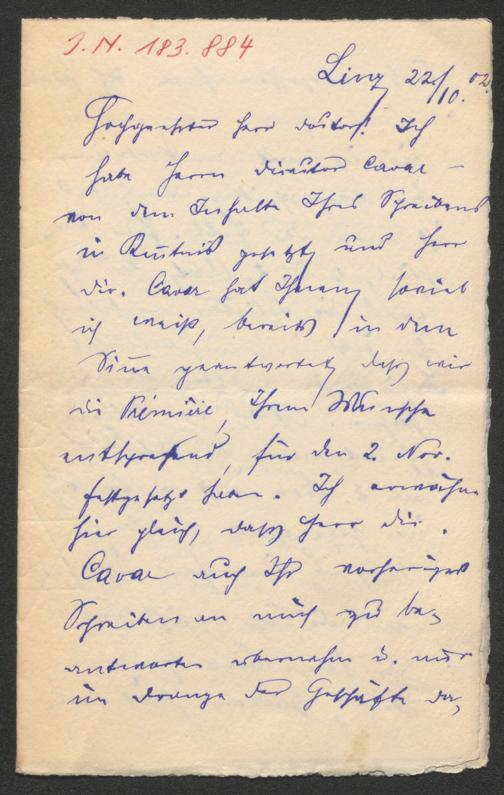 J. N. 183.884
Linz 22/10. 02.
Hochgeehrter Herr Doktor! Ich
habe Herrn Direktor Cavar
von dem Inhalte Ihres Schreibens
in Kenntniß gesetzt, und Herr
Dir. Cavar hat Ihnen, soviel
ich weiß, bereits in dem
Sinne geantwortet, daß wir
die Première, Ihrem Wunsche
entsprechend, für den 2. Nov.
festgesetzt haben. Ich erwähne
hier gleich, daß Herr Dir.
Cavar auch Ihr vorheriges
Schreiben an mich zu be-
antworten übernahm u. nur
im Drange der Geschäfte da-